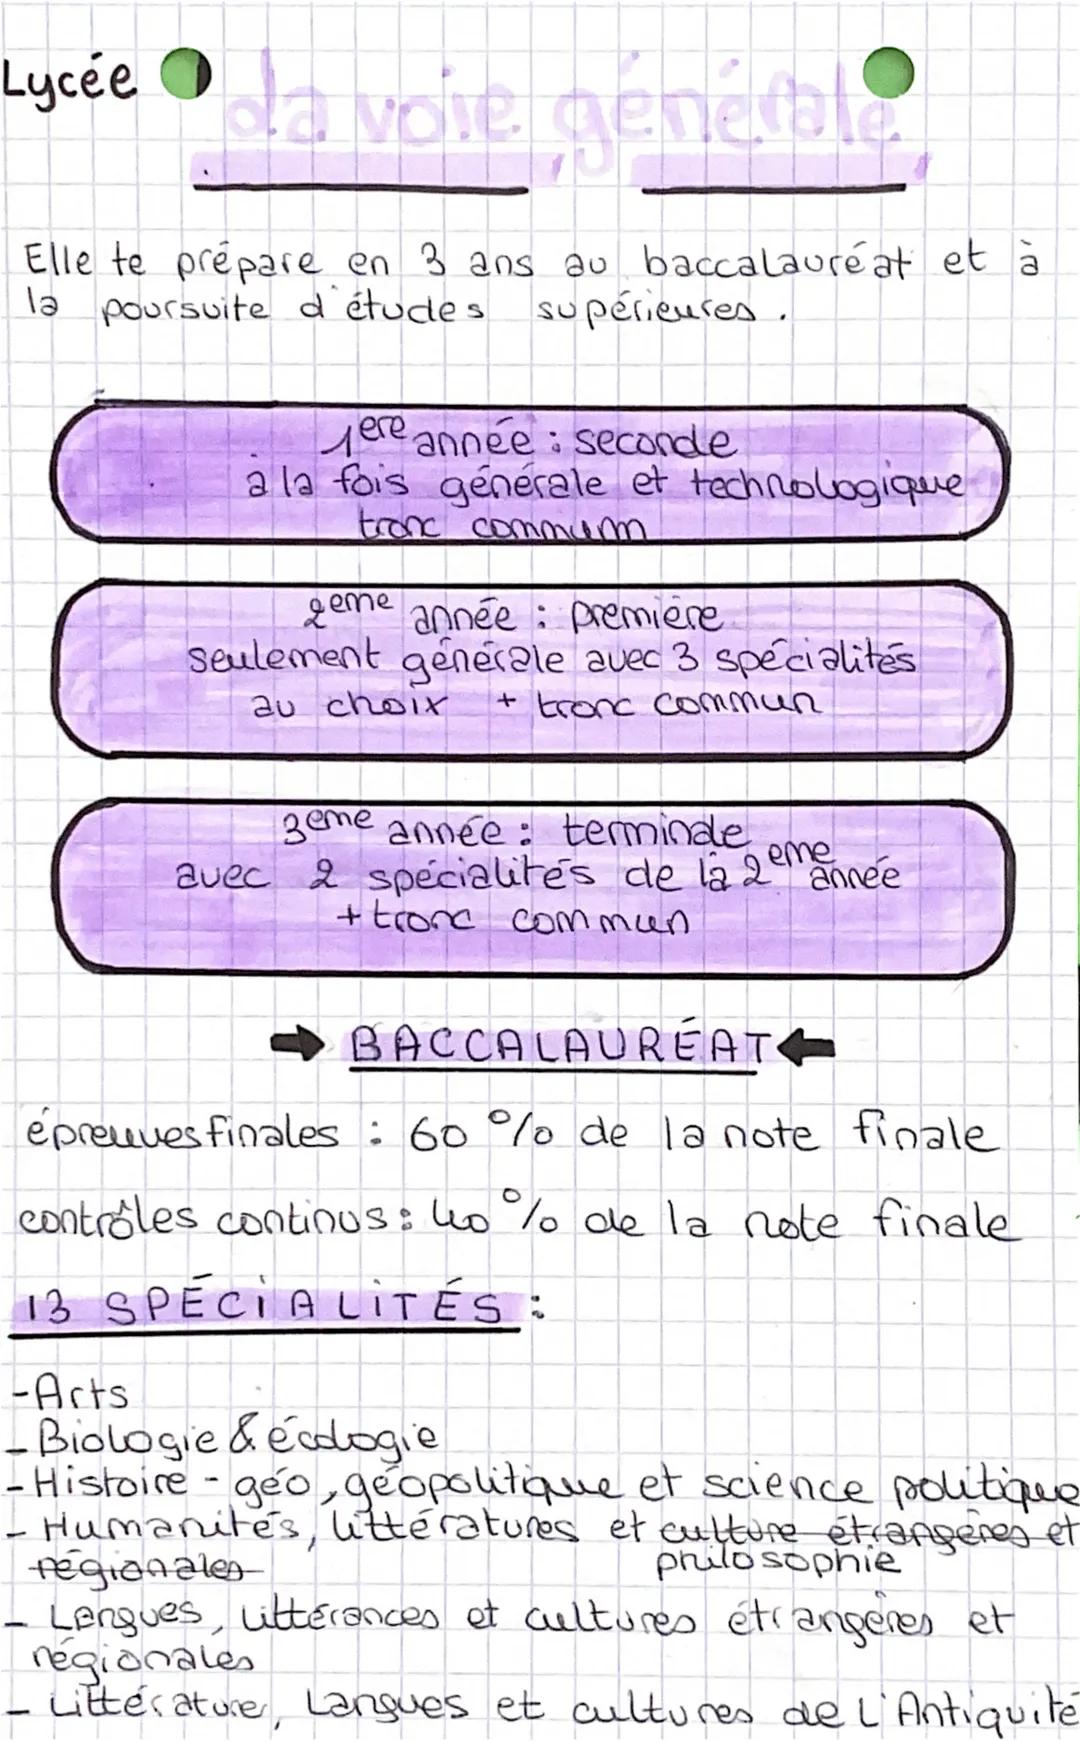 Lycée
La voie générale
Elle te prépare en 3 ans au baccalauréat et à
la poursuite d'études supérieures.
1ere année : seconde
à la fois générale et technologique
tronc commum
2eme année : première
seulement générale avec 3 spécialités
au choix + tronc commun
3eme année : terminale
avec 2 spécialités de la 2eme année
+ tronc commun
BACCALAURÉAT
épreuves finales : 60 % de la note finale
contrôles continus : 40 % de la note finale
13 SPÉCIALITÉS :
- Arts
- Biologie & écologie
- Histoire - géo, géopolitique et science politique
- Humanités, littératures et culture étrangères et
régionales philosophie
- Langues, littérances et cultures étrangères et
régionales
- Littérature, Langues et cultures de L'Antiquité